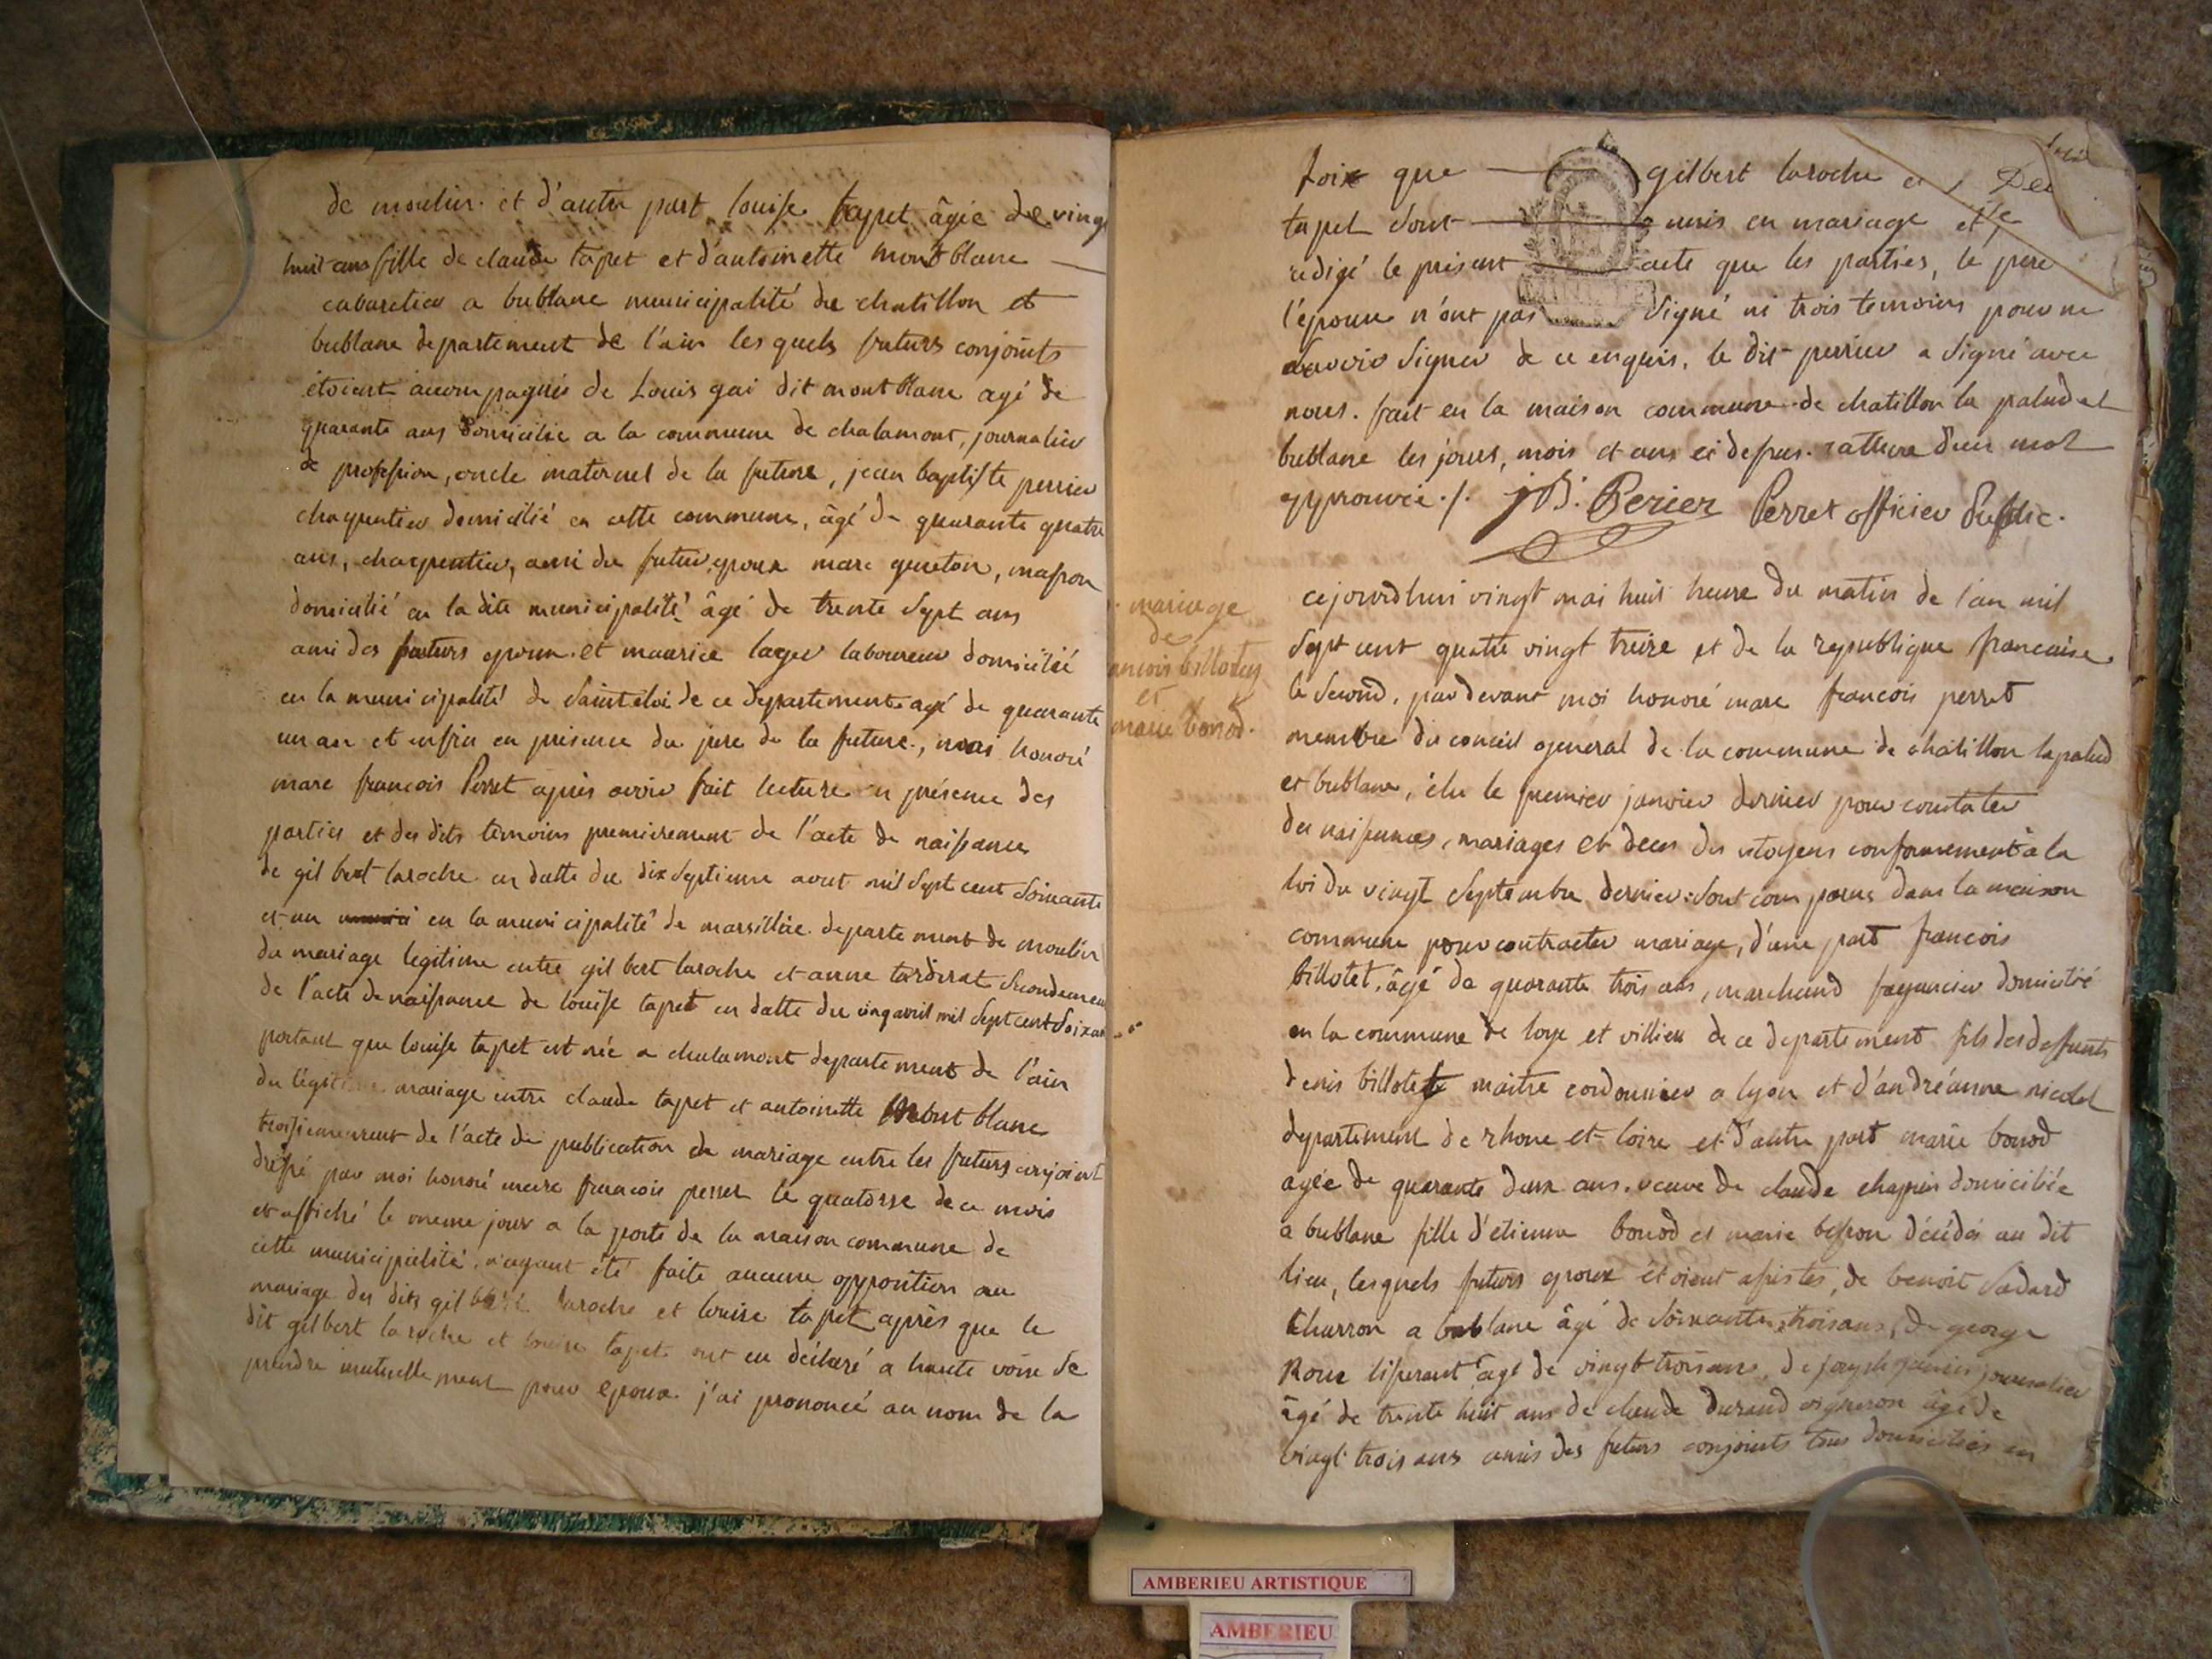 de moulin. et d'autre part louise tapet âgée de vingt
huit ans fille de claude tapet et d'antoinette mont blanc
cabaretier a bublane municipalité de chatillon et
bublane departement de l'ain les quels futurs conjoints
étoient acompagnés de Louis gai dit mont blanc agé de
quarante ans domicilié a la commune de chalamont, journalier
de profession, oncle maternel de la future, jean baptiste perrier
charpentier domicilié en cette commune, âgé de quarante quatre
ans, charpentier, ami du futur epoux marc gureton, masson
domicilié en la dite municipalité âgé de trente sept ans
ami des futurs epoux. et maurice lager laboureur domicilié
en la municipalité de saint eloi de ce departement agé de quarante
un an et enfin en presence du pere de la future, nous honoré
marc francois Perret après avoir fait lecture en présence des
parties et des dits temoins premierement de l'acte de naissance
de gilbert laroche en datte du dix septieme aout mil sept cent soixante
et un en la municipalité de marsillée departement de moulin
du mariage legitime entre gilbert laroche et anne tardivat secondement
de l'acte de naissance de louise tapet en datte du cinq avril mil sept cent soixan
portant que louise tapet est née a chalamont departement de l'ain
du légitime mariage entre claude tapet et antoinette mont blanc
troisiemement de l'acte de publication de mariage entre les futurs conjoint
dressé par moi honoré marc francois perret le quatorse de ce mois
et affiché le meme jour a la porte de la maison commune de
cette municipalité, n'ayant été faite aucune opposition au
mariage des dits gilbert laroche et louise tapet après que le
dit gilbert laroche et louise tapet ont eu déclaré a haute voix se
prendre mutuellement pour epoux j'ai prononcé au nom de la
loix que gilbert laroche et
tapet sont unis en mariage et je
redigé le present acte que les parties, le pere
l'épouse n'ont pas signé ni trois temoins pour ne
savoir signer de ce enquis. le dit perrier a signé avec
nous. fait en la maison commune de chatillon la palud et
bublane les jours, mois et ans ci dessus. rature d'un mot
approuvée ./. JB. Perier Perret officier Public.
mariage
de
ancois billotey
et
marie bonod.
cejourdhui vingt mai huit heure du matin de l'an mil
sept cent quatre vingt treize et de la republique francaise
le second, par devant moi honoré marc francois perret
membre du conseil general de la commune de chatillon lapalud
et bublane, élu le premier janvier dernier pour constater
des naissances, mariages et deces des citoyens conformement à la
loi du vingt septembre dernier: sont com parus dans la maison
commune pour contracter mariage, d'une part francois
billotet, âgé de quarante trois ans, marchand fayancier domicilié
en la commune de loye et villieu de ce departement fils des deffunts
denis billotet maitre cordonnier a lyon et d'andréanne nicolet
departement de rhone et loire et d'autre part marie bonod
agée de quarante deux ans, veuve de claude chappin domiciliée
a bublane fille d'etienne bonod et marie besson décédés au dit
lieu, lesquels futurs epoux étoient assistés, de benoit sadard
charron a bublane âgé de soixante trois ans, de george
Roux tisserant agé de vingt trois ans, de joseph journalier
âgé de trente huit ans de claude durand vigneron âgé de
vingt trois ans amis des futurs conjoints tous domiciliés en
AMBERIEU ARTISTIQUE
AMBERIEU